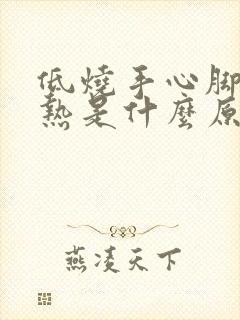 低燒手心腳
熱是什麼原
燕凌天下